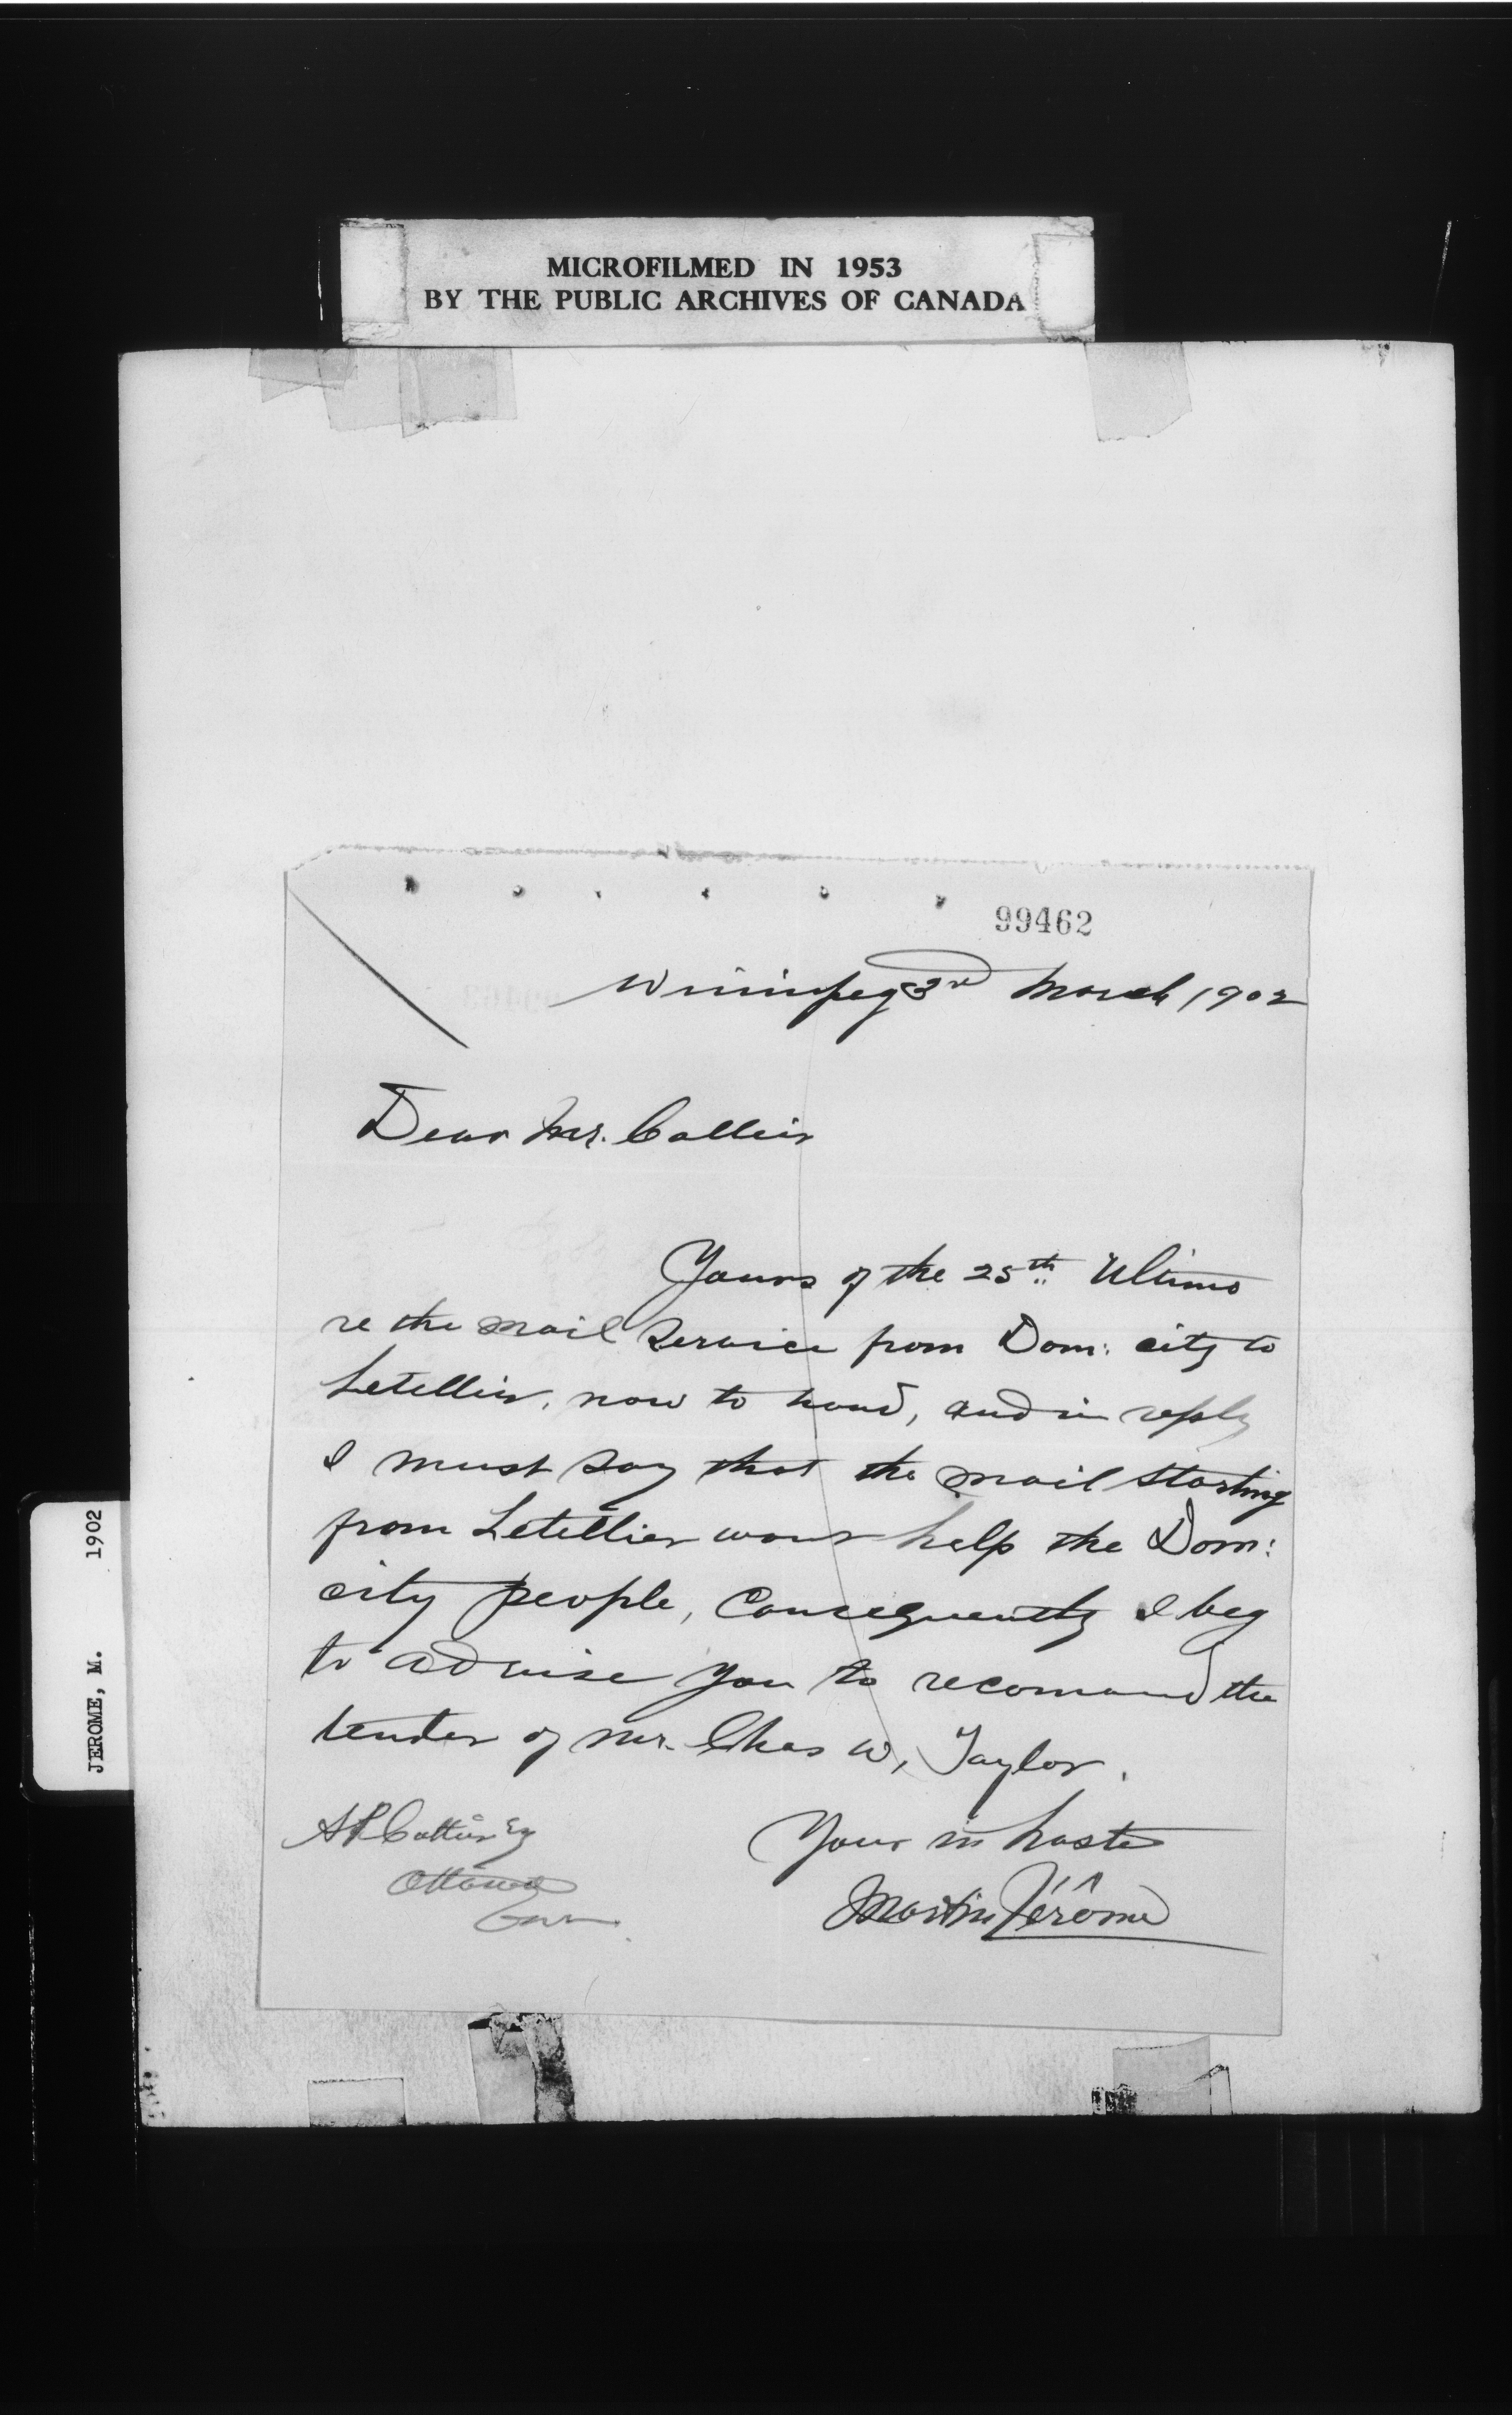 MICROFILMED IN 1953
BY THE PUBLIC ARCHIVES OF CANADA
99462
Winnipeg 3rd March 1902
Dear Mr. Collier
Yours of the 25th Ultimo
re the mail Service from Dom: city to
Letellier, now to hand, and in reply
I must say that the mail starting
from Letellier wont help the Dom:
city people, Consequently I beg
to advise you to recomand the
tender of Mr. Chas W, Taylor.
Your in haste
Martin Jérôme
Esq
Ottawa
JEROME, M. 1902